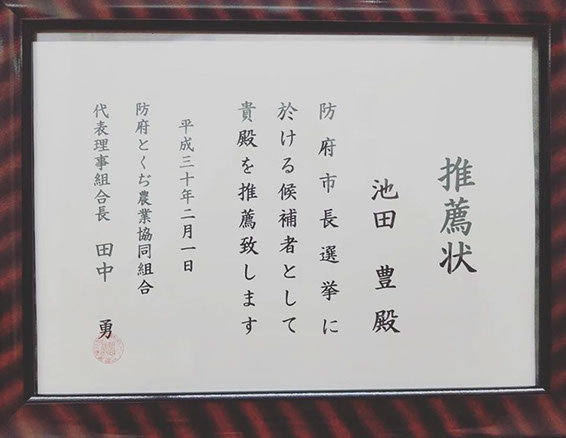 推薦状
池田 豊 殿
防府市長選挙に
於ける候補者として
貴殿を推薦致します
平成三十年二月一日
防府とくぢ農業協同組合
代表理事組合長 田中 勇